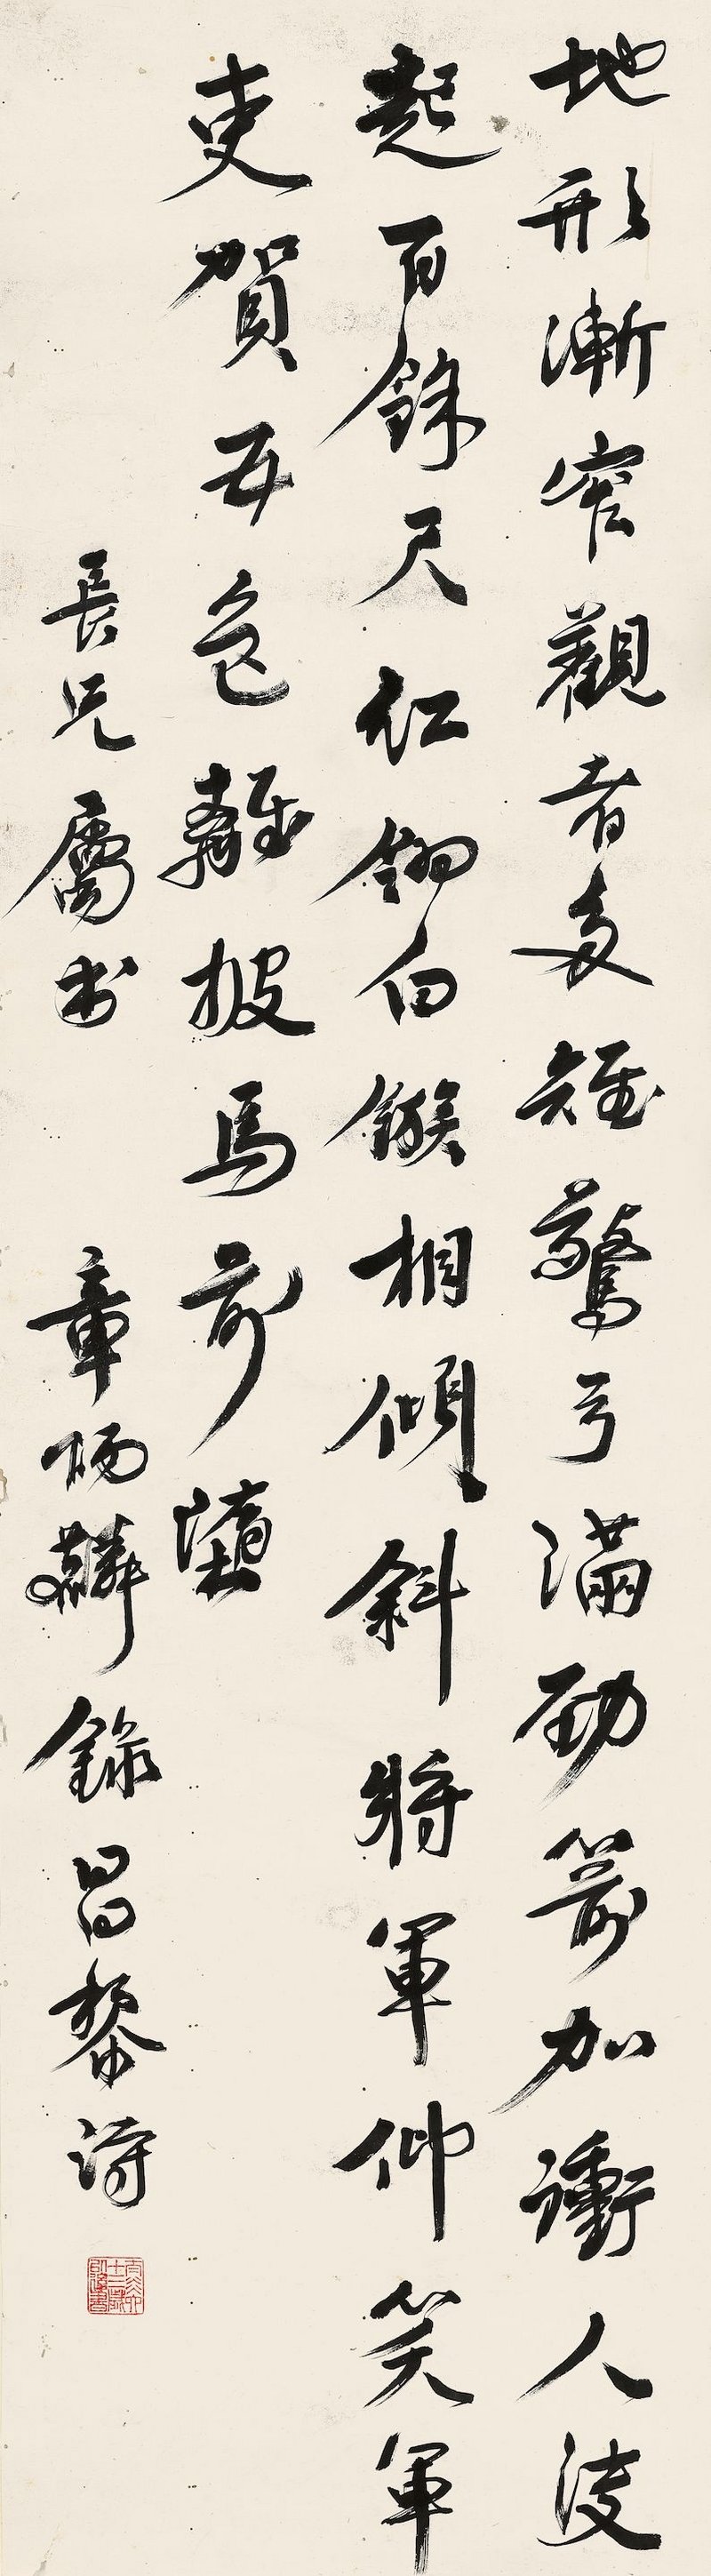 地形漸窄觀者多雉驚弓滿勁箭加衝人決
起百餘尺紅翎白鏃相傾斜將軍仰笑軍
吏賀五色離披馬前墮
長兄屬書 章炳麟錄昌黎詩